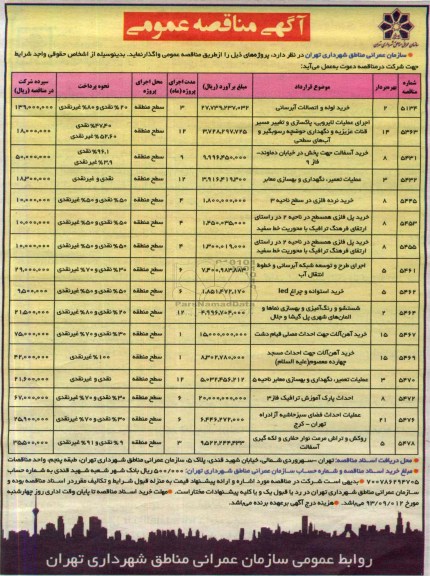 آگهی مناقصه عمومی
سازمان عمرانی مناطق شهرداری تهران در نظر دارد، پروژه‌های ذیل را ازطریق مناقصه عمومی واگذارنماید. بدینوسیله از اشخاص حقوقی واجد شرایط
جهت شرکت درمناقصه دعوت بعمل می‌آید:
شماره مناقصه بهره‌بردار موضوع قرارداد مبلغ برآورد (ریال) مدت اجرای پروژه (ماه) محل اجرای پروژه نحوه پرداخت سپرده شرکت در مناقصه (ریال)
۵۱۳۴ ۲ خرید لوله و اتصالات آبرسانی ۲۷,۷۳۹,۲۳۷,۰۳۲ ۳ سطح منطقه ۲۰٪ نقدی و ۸۰٪ غیرنقدی ۱۳۹,۰۰۰,۰۰۰
۵۳۶۳ ۱۴ اجرای عملیات لایروبی، پاکسازی و تغییر مسیر
قنات عزیزیه و نگهداری حوضچه رسوبگیر و
آب‌های سطحی ۳,۷۲۸,۲۹۷,۷۲۵ ۱۲ سطح منطقه ۴۷,۴۰٪ نقدی و ۵۲,۶۰٪ غیرنقدی ۱۸,۰۰۰,۰۰۰
۵۴۳۱ ۸ خرید آسفالت جهت پخش در خیابان دماوند-
فاز ۹ ۹,۹۹۶,۴۵۰,۰۰۰ ۹ سطح منطقه ۹۶,۱٪ نقدی و ۳,۹٪ غیرنقدی ۵۰,۰۰۰,۰۰۰
۵۴۳۲ ۳ عملیات تعمیر، نگهداری و بهسازی معابر ۳,۹۱۶,۴۱۹,۳۰۰ ۱۲ سطح منطقه نقدی و غیرنقدی ۱۸,۳۰۰,۰۰۰
۵۴۴۵ ۸ خرید نرده فلزی در سطح ناحیه ۳ ۱,۸۰۰,۰۰۰,۰۰۰ ۴ سطح منطقه ۵۰٪ نقدی و ۵۰٪ غیرنقدی ۱۰,۰۰۰,۰۰۰
۵۴۵۳ ۸ خرید پل فلزی همسطح در ناحیه ۲ در راستای
ارتقای فرهنگ ترافیک با محوریت خط سفید ۱,۴۵۰,۰۳۵,۰۰۰ ۴ سطح منطقه ۵۰٪ نقدی و ۵۰٪ غیرنقدی ۱۰,۰۰۰,۰۰۰
۵۴۵۵ ۸ خرید پل فلزی همسطح در ناحیه ۲ در راستای
ارتقای فرهنگ ترافیک با محوریت خط سفید ۱,۳۰۰,۰۱۹,۰۰۰ ۴ سطح منطقه ۵۰٪ نقدی و ۵۰٪ غیرنقدی ۱۰,۰۰۰,۰۰۰
۵۴۶۱ ۵ اجرای طرح و توسعه شبکه آبرسانی و خطوط
انتقال آب ۷,۴۰۰,۹۸۳,۸۸۳ ۶ سطح منطقه ۳۰٪ نقدی و ۷۰٪ غیرنقدی ۲۹,۰۰۰,۰۰۰
۵۴۶۲ ۵ خرید استوانه و چراغ led ۱,۸۵۱,۴۷۲,۱۷۰ ۶ سطح منطقه ۵۰٪ نقدی و ۵۰٪ غیرنقدی ۹,۵۰۰,۰۰۰
۵۴۶۴ ۲ شستشو و رنگ‌آمیزی و بهسازی نماها و
المان‌های شهری پل گیشا و جلال ۴,۹۹۶,۷۰۴,۰۰۰ ۱۲ سطح منطقه ۲۰٪ نقدی و ۸۰٪ غیرنقدی ۲۱,۵۰۰,۰۰۰
۵۴۶۷ ۱۵ خرید آهن‌آلات جهت احداث مصلی قیام دشت ۱۵,۰۰۰,۰۰۰,۰۰۰ ۱ سطح منطقه ۳۰٪ نقدی و ۷۰٪ غیرنقدی ۷۵,۰۰۰,۰۰۰
۵۴۶۹ ۱۵ خرید آهن‌آلات جهت احداث مسجد
چهارده معصوم(علیه السلام) ۸,۳۰۲,۷۸۰,۰۰۰ ۱ سطح منطقه ۱۰۰٪ غیرنقدی ۴۲,۰۰۰,۰۰۰
۵۴۷۰ ۳ عملیات تعمیر، نگهداری و بهسازی معابر ناحیه ۵ ۵,۰۳۲,۴۵۶,۲۱۲ ۱۲ سطح منطقه نقدی و غیرنقدی ۲۱,۶۰۰,۰۰۰
۵۴۷۲ ۸ احداث پارک آموزش ترافیک فاز ۳ ۲۰,۰۰۰,۰۰۰,۰۰۰ ۶ سطح منطقه ۳۰٪ نقدی و ۷۰٪ غیرنقدی ۶۷,۰۰۰,۰۰۰
۵۴۷۶ ۲۱ عملیات احداث فضای سبزحاشیه آزادراه
تهران - کرج ۶,۴۴۶,۲۷۲,۰۰۰ ۶ سطح منطقه ۳۰٪ نقدی و ۷۰٪ غیرنقدی ۲۵,۹۰۰,۰۰۰
۵۴۷۸ ۵ روکش و تراش مرمت نوار حفاری و لکه گیری
آسفالت ۹,۵۲۲,۲۴۴,۴۳۳ ۳ سطح منطقه ۹٪ نقدی و ۹۱٪ غیرنقدی ۳۵,۵۰۰,۰۰۰
محل دریافت اسناد مناقصه: تهران، سهروردی شمالی، خیابان شهید قندی، پلاک ۵، سازمان عمرانی مناطق شهرداری تهران، طبقه پنجم، واحد مناقصات
مبلغ خرید اسناد مناقصه و شماره حساب سازمان عمرانی مناطق شهرداری تهران: ۵۰۰/۰۰۰ ریال بانک شهر شعبه شهید قندی به شماره حساب
۷۰۰۷۸۶۲۹۴۷۰۵ بدیهی است شرکت در مناقصه مورد اشاره و ارائه پیشنهاد قیمت به منزله قبول شرایط و تکالیف مقرر در اسناد مناقصه بوده و
سازمان عمرانی مناطق شهرداری تهران در رد یا قبول یک و یا کلیه پیشنهادات مختار است. مهلت خرید اسناد مناقصه تا پایان وقت اداری روز چهارشنبه
مورخ ۹۳/۰۹/۱۲ می‌باشد. هزینه درج آگهی برعهده برنده می‌باشد.
روابط عمومی سازمان عمرانی مناطق شهرداری تهران
ParsNamadData